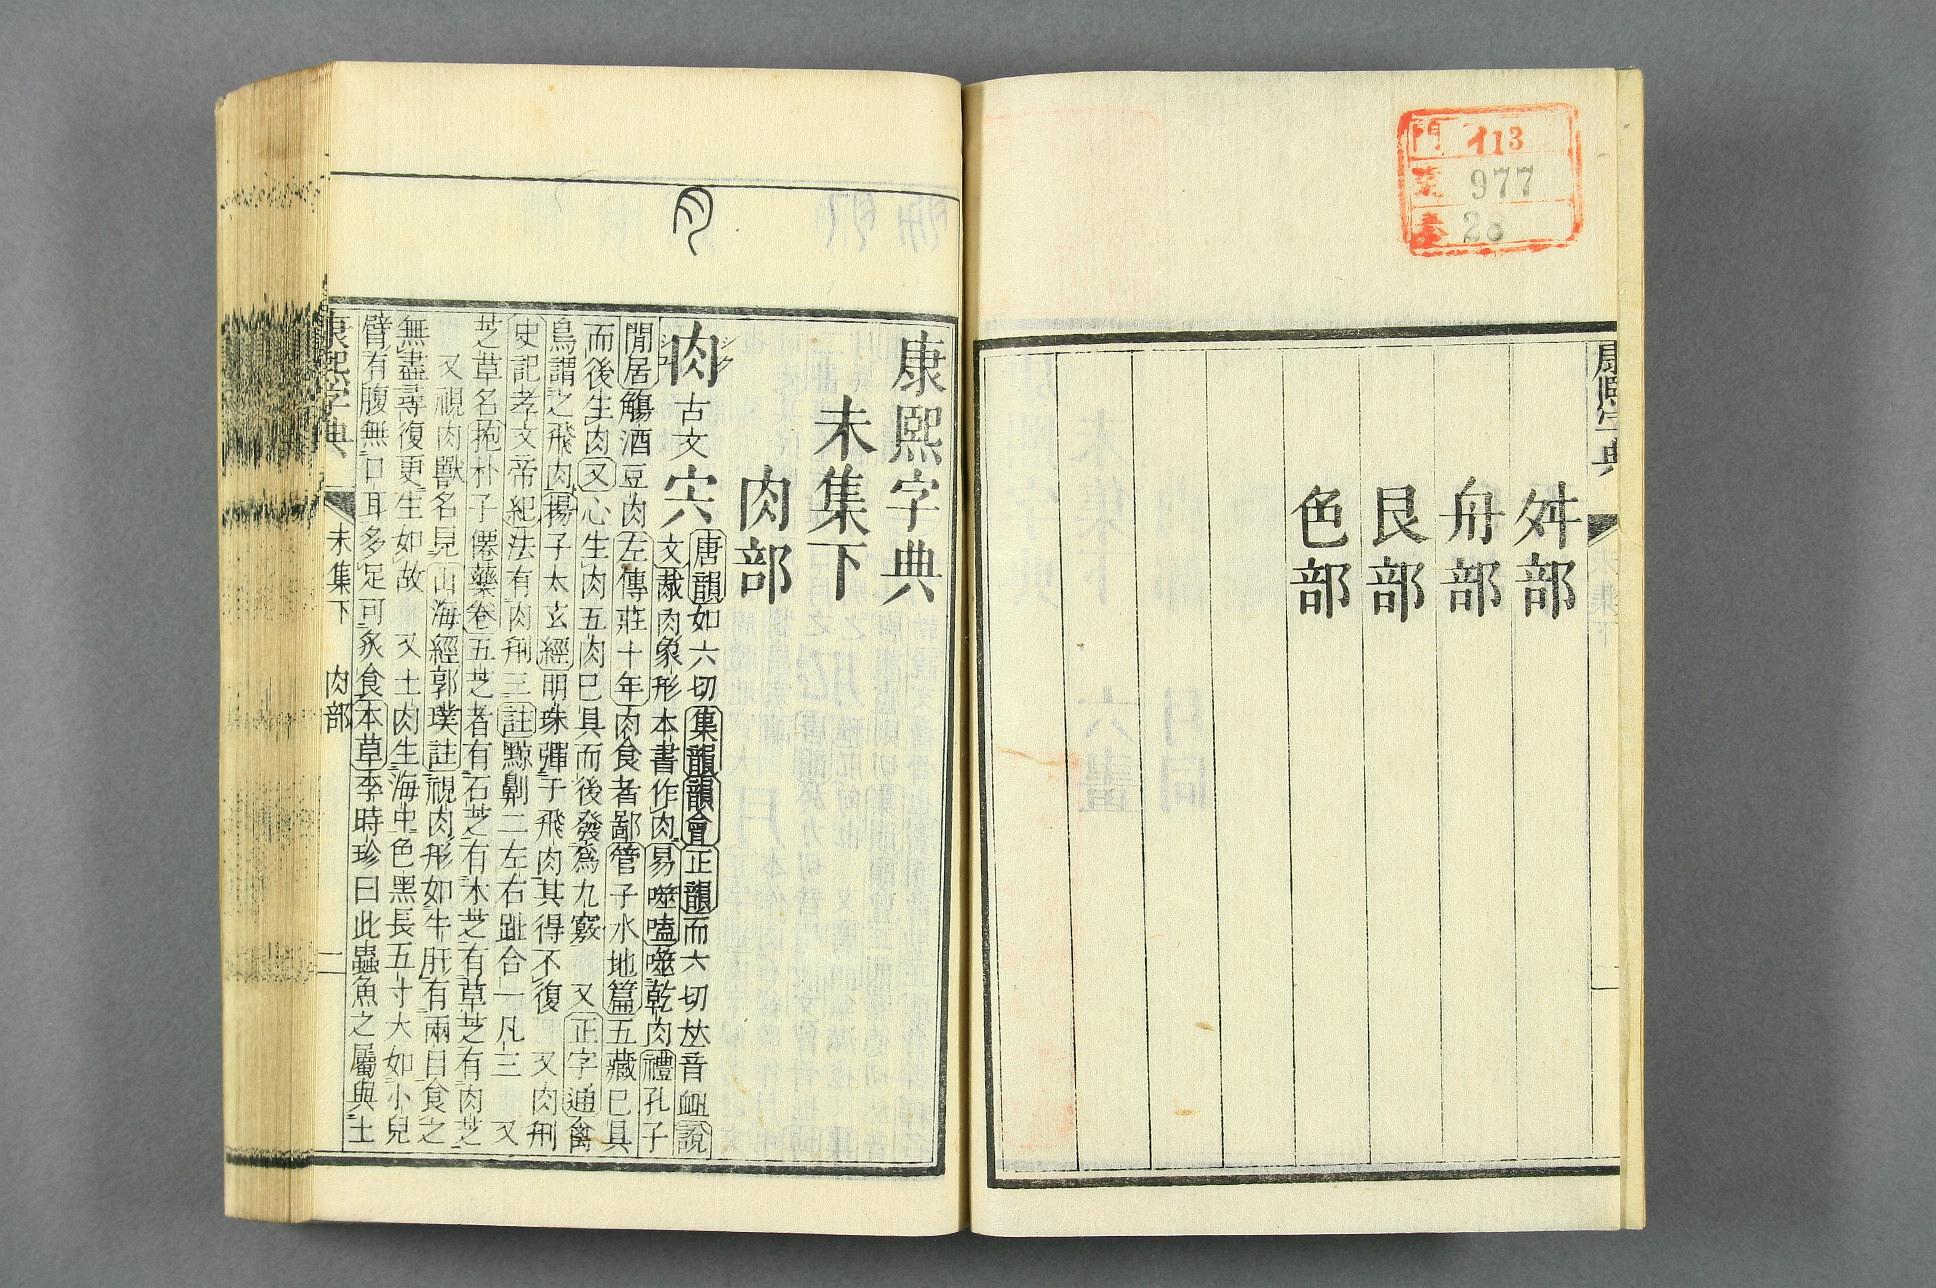 門 イ13
號 977
卷 28
康熙字典 未集下 一
舛部
舟部
艮部
色部
康熙字典
未集下
肉部
肉 古文 宍
唐韻如六切集韻韻會正韻而六切𠀤音衄說
文胾肉象形本書作肉易噬嗑噬乾肉禮孔子
閒居觴酒豆肉左傳莊十年肉食者鄙管子水地篇五藏已具
而後生肉又心生肉五肉已具而後發爲九竅 又正字通禽
鳥謂之飛肉揚子太玄經明珠彈于飛肉其得不復 又肉刑
史記孝文帝紀法有肉刑三註黥劓二左右趾合一凡三 又
芝草名抱朴子僊藥卷五芝者有石芝有木芝有草芝有肉芝
又視肉獸名見山海經郭璞註視肉形如牛肝有兩目食之
無盡尋復更生如故 又土肉生海中色黑長五寸大如小兒
臂有腹無口耳多足可炙食本草李時珍曰此蟲魚之屬與土
康熙字典 未集下 肉部 二